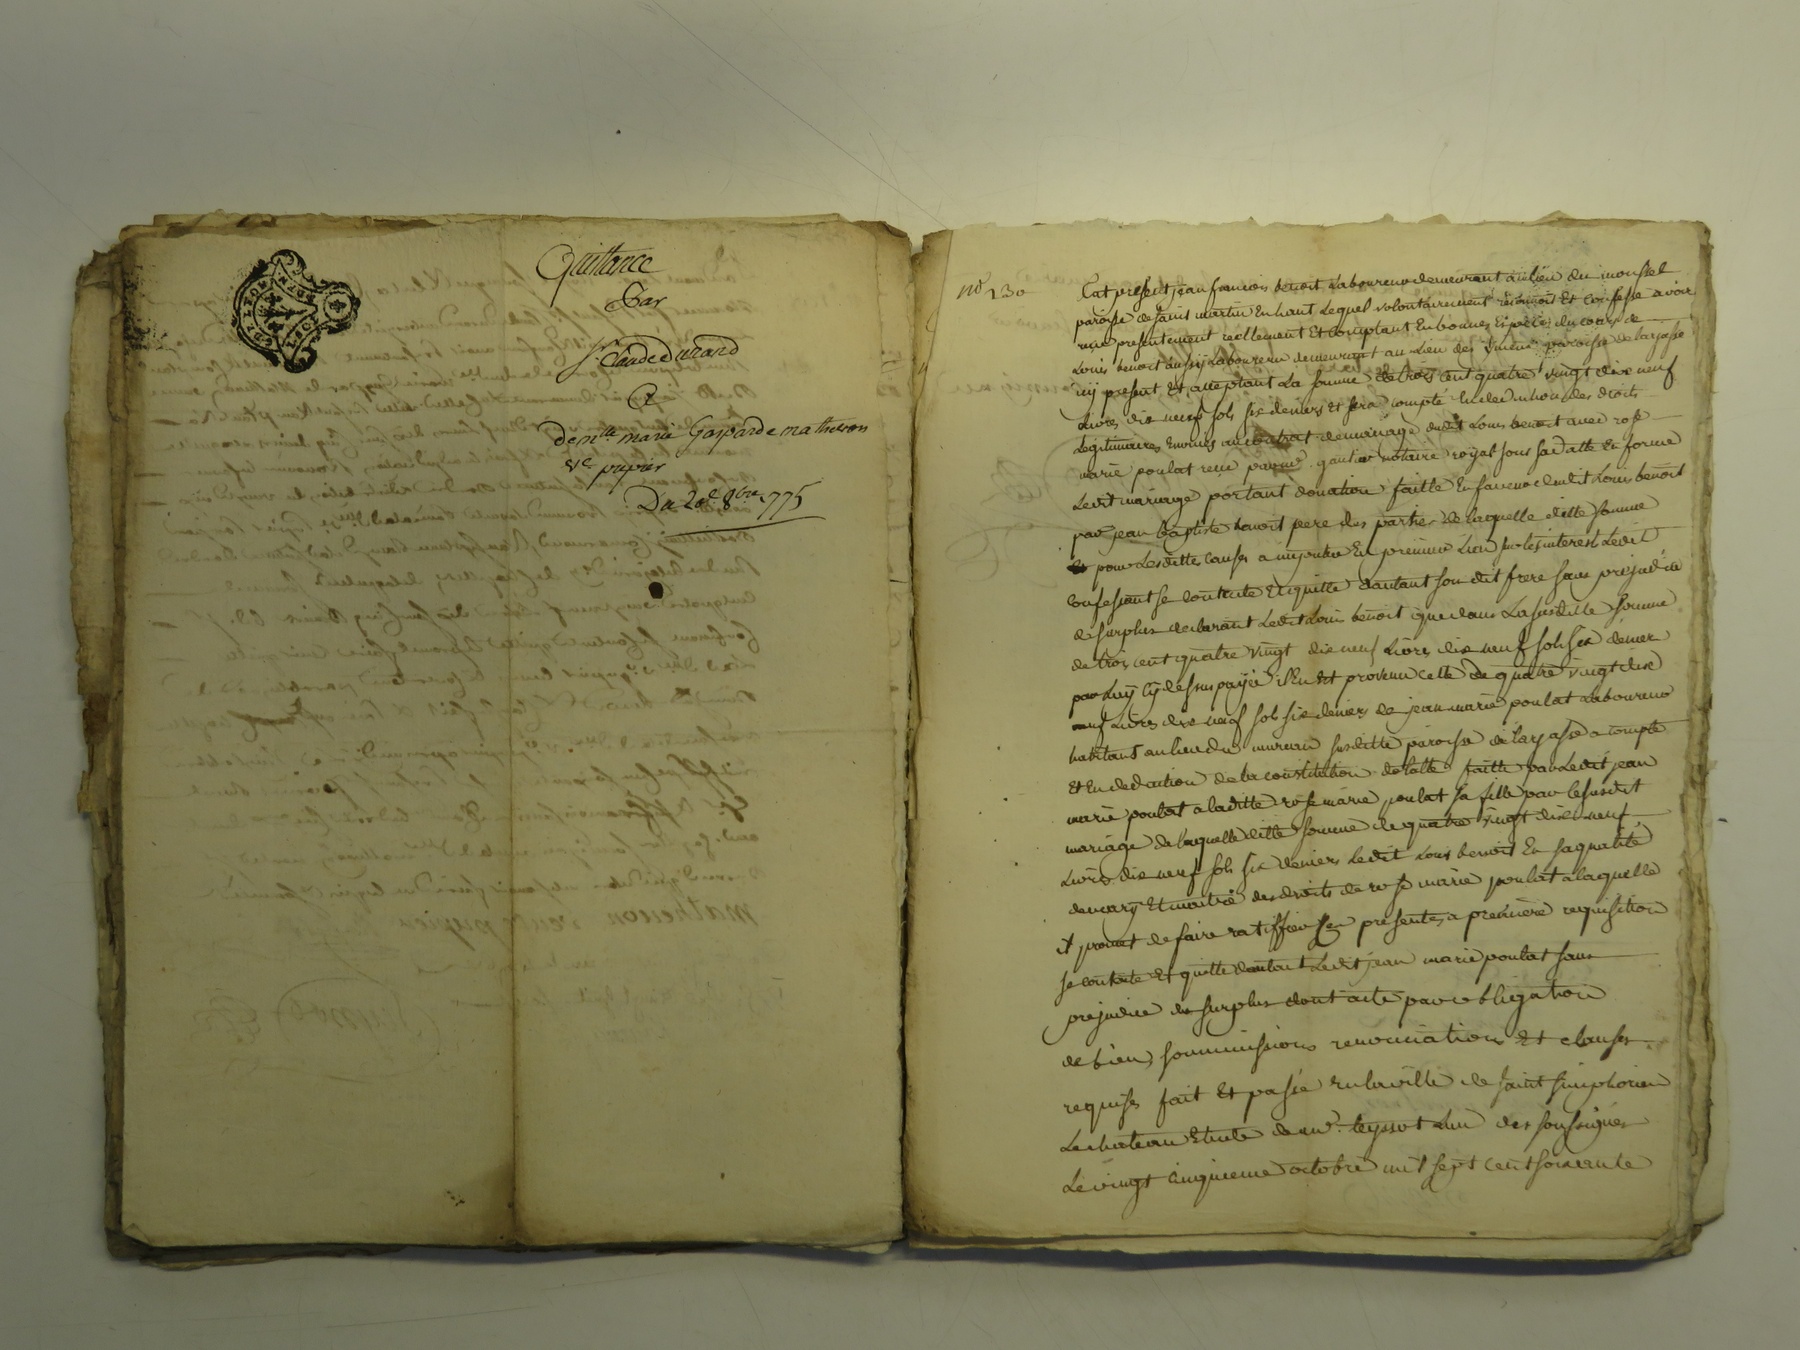 Quittance
Par
Sr. Claude durand
A
demlle marie Gasparde matheron
ve. pupier
Du 20e 8bre 1775
GEN DE LYON
no 130
Est présent jean francois benoit Laboureur demeurant au lieu du
paroisse de saint martin En haut Lequel volontairement reconnoit Et confesse avoir
reçu presentement reellement Et comptant En bonnes Especes du cours de
Louis benoit aussy Laboureur demeurant au Lieu des paroisse de larajasse
icy present Et acceptant La somme de trois cent quatre vingt dix neuf
Livres dix neuf sols six deniers Et sera compte En deduction des droits
Legitimaires au contrat demariage dudit Louis benoit avec rose
marie poulat reçu par me. notaire royal sous sa datte En forme
Ledit mariage portant donation faitte En faveur dudit Louis benoit
par jean baptiste benoit pere des parties de laquelle ditte somme
Et pour Lesdittes causes a imputer En premier Lieu sur les interest Ledit
confessant se contente Et quitte dautant son dit frere sans prejudice
du surplus declarant Ledit Louis benoit que dans La susditte somme
de trois cent quatre vingt dix neuf Livres dix neuf sols six denier
par Luy Cy dessus payée il En Est provenu celle de quatre vingt dix
neuf Livres dix neuf sols six deniers de jean marie poulat Laboureur
habitant au lieu du susditte paroisse de larajasse a compte
Et En deduction de la constitution faitte par Ledit jean
marie poulat a laditte rose marie poulat sa fille par le susdit
mariage de laquelle ditte somme de quatre vingt dix neuf
Livres dix neuf sols six deniers Ledit Louis benoit En sa qualité
de mary Et maitre des droits de rose marie poulat a laquelle
il promet de faire ratiffier Les presentes a premiere requisition
se contente Et quitte dautant Ledit jean marie poulat sans
prejudice du surplus dont acte par obligation
de biens soummissions renonciations Et clauses
requises fait Et passé En la ville de saint simphorien
Le chateau Etude de me. teyssot L'un des soussignés
Le vingt cinquieme octobre mil sept cent soixante